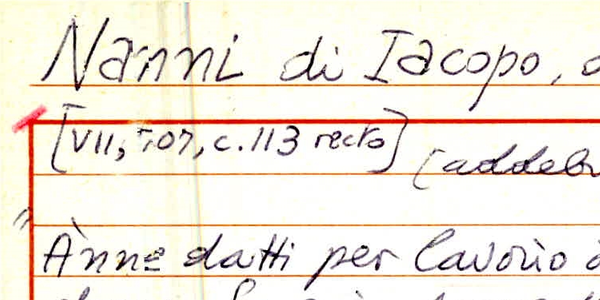 Nanni di Iacopo,
[VII, 707, c. 113 recto] (addebi
" Ànne datti per lavorìo